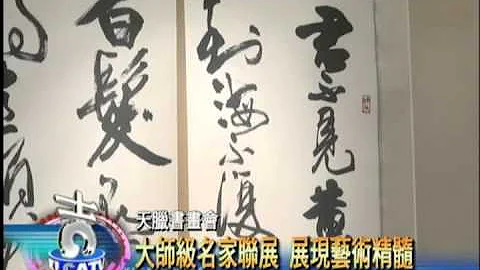 君不見黃
到海不復
白髮
天臘書畫會
大師級名家聯展 展現藝術精髓